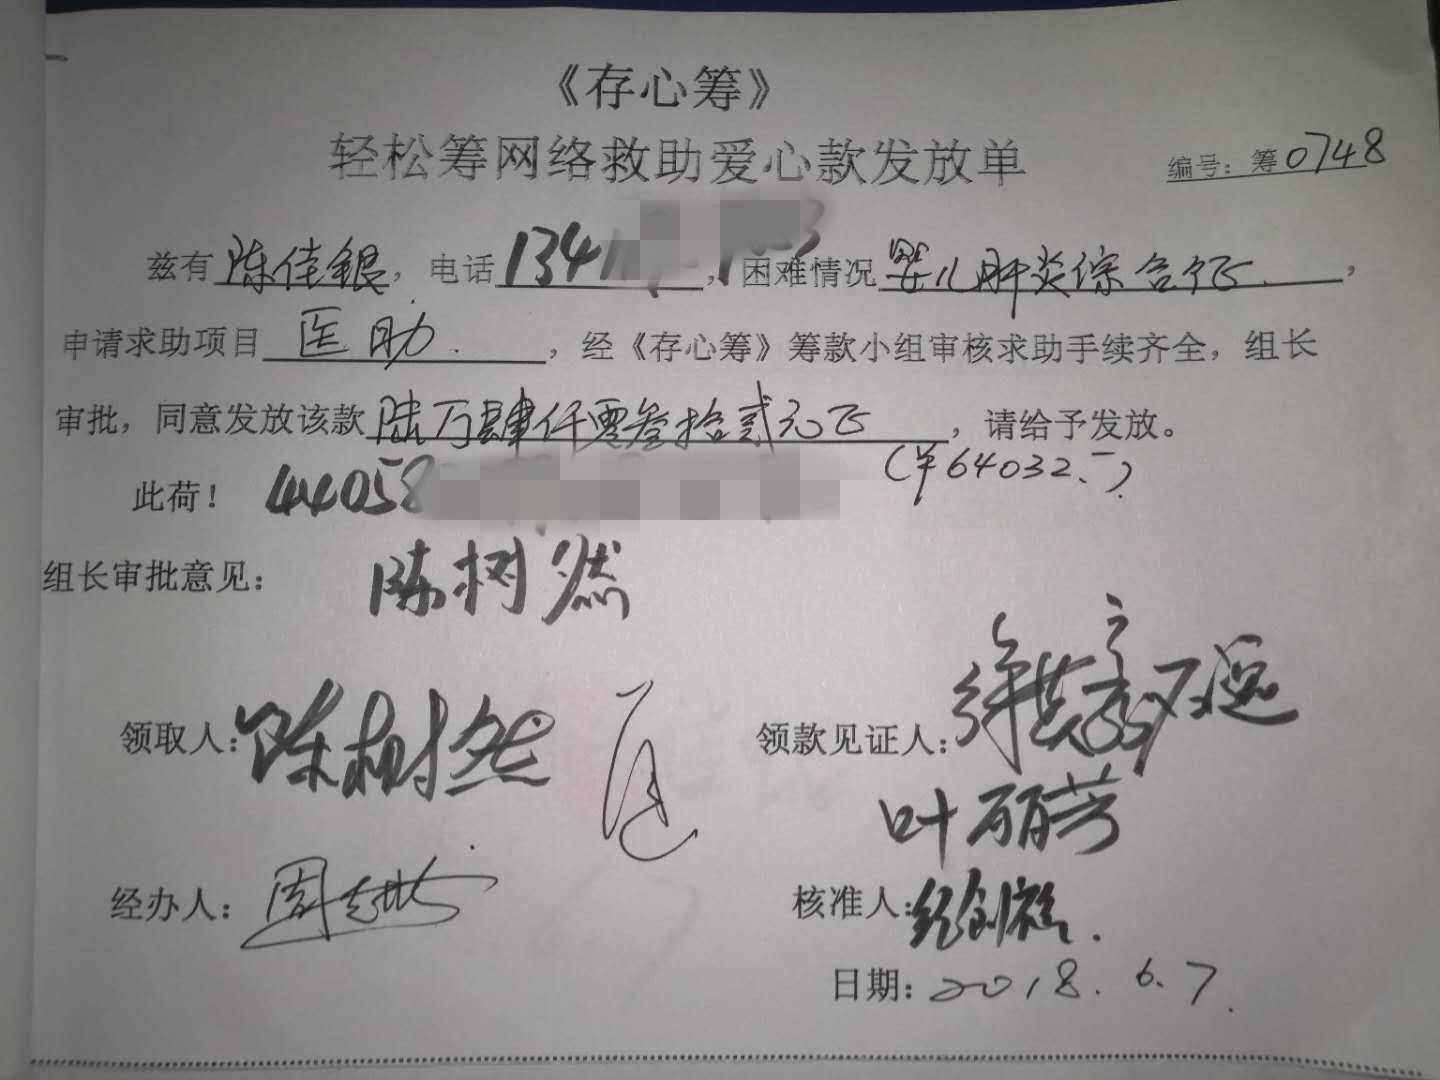 《存心筹》
轻松筹网络救助爱心款发放单
编号：筹0748
兹有陈佳银，电话134，困难情况婴儿肝炎综合征，
申请求助项目医助，经《存心筹》筹款小组审核求助手续齐全，组长
审批，同意发放该款陆万肆仟零叁拾贰元正，请给予发放。
(￥64032.-)
此荷！ 44058
组长审批意见： 陈树然
领取人：陈树然
领款见证人：
叶丽芳
经办人：周
核准人：
日期：2018.6.7.